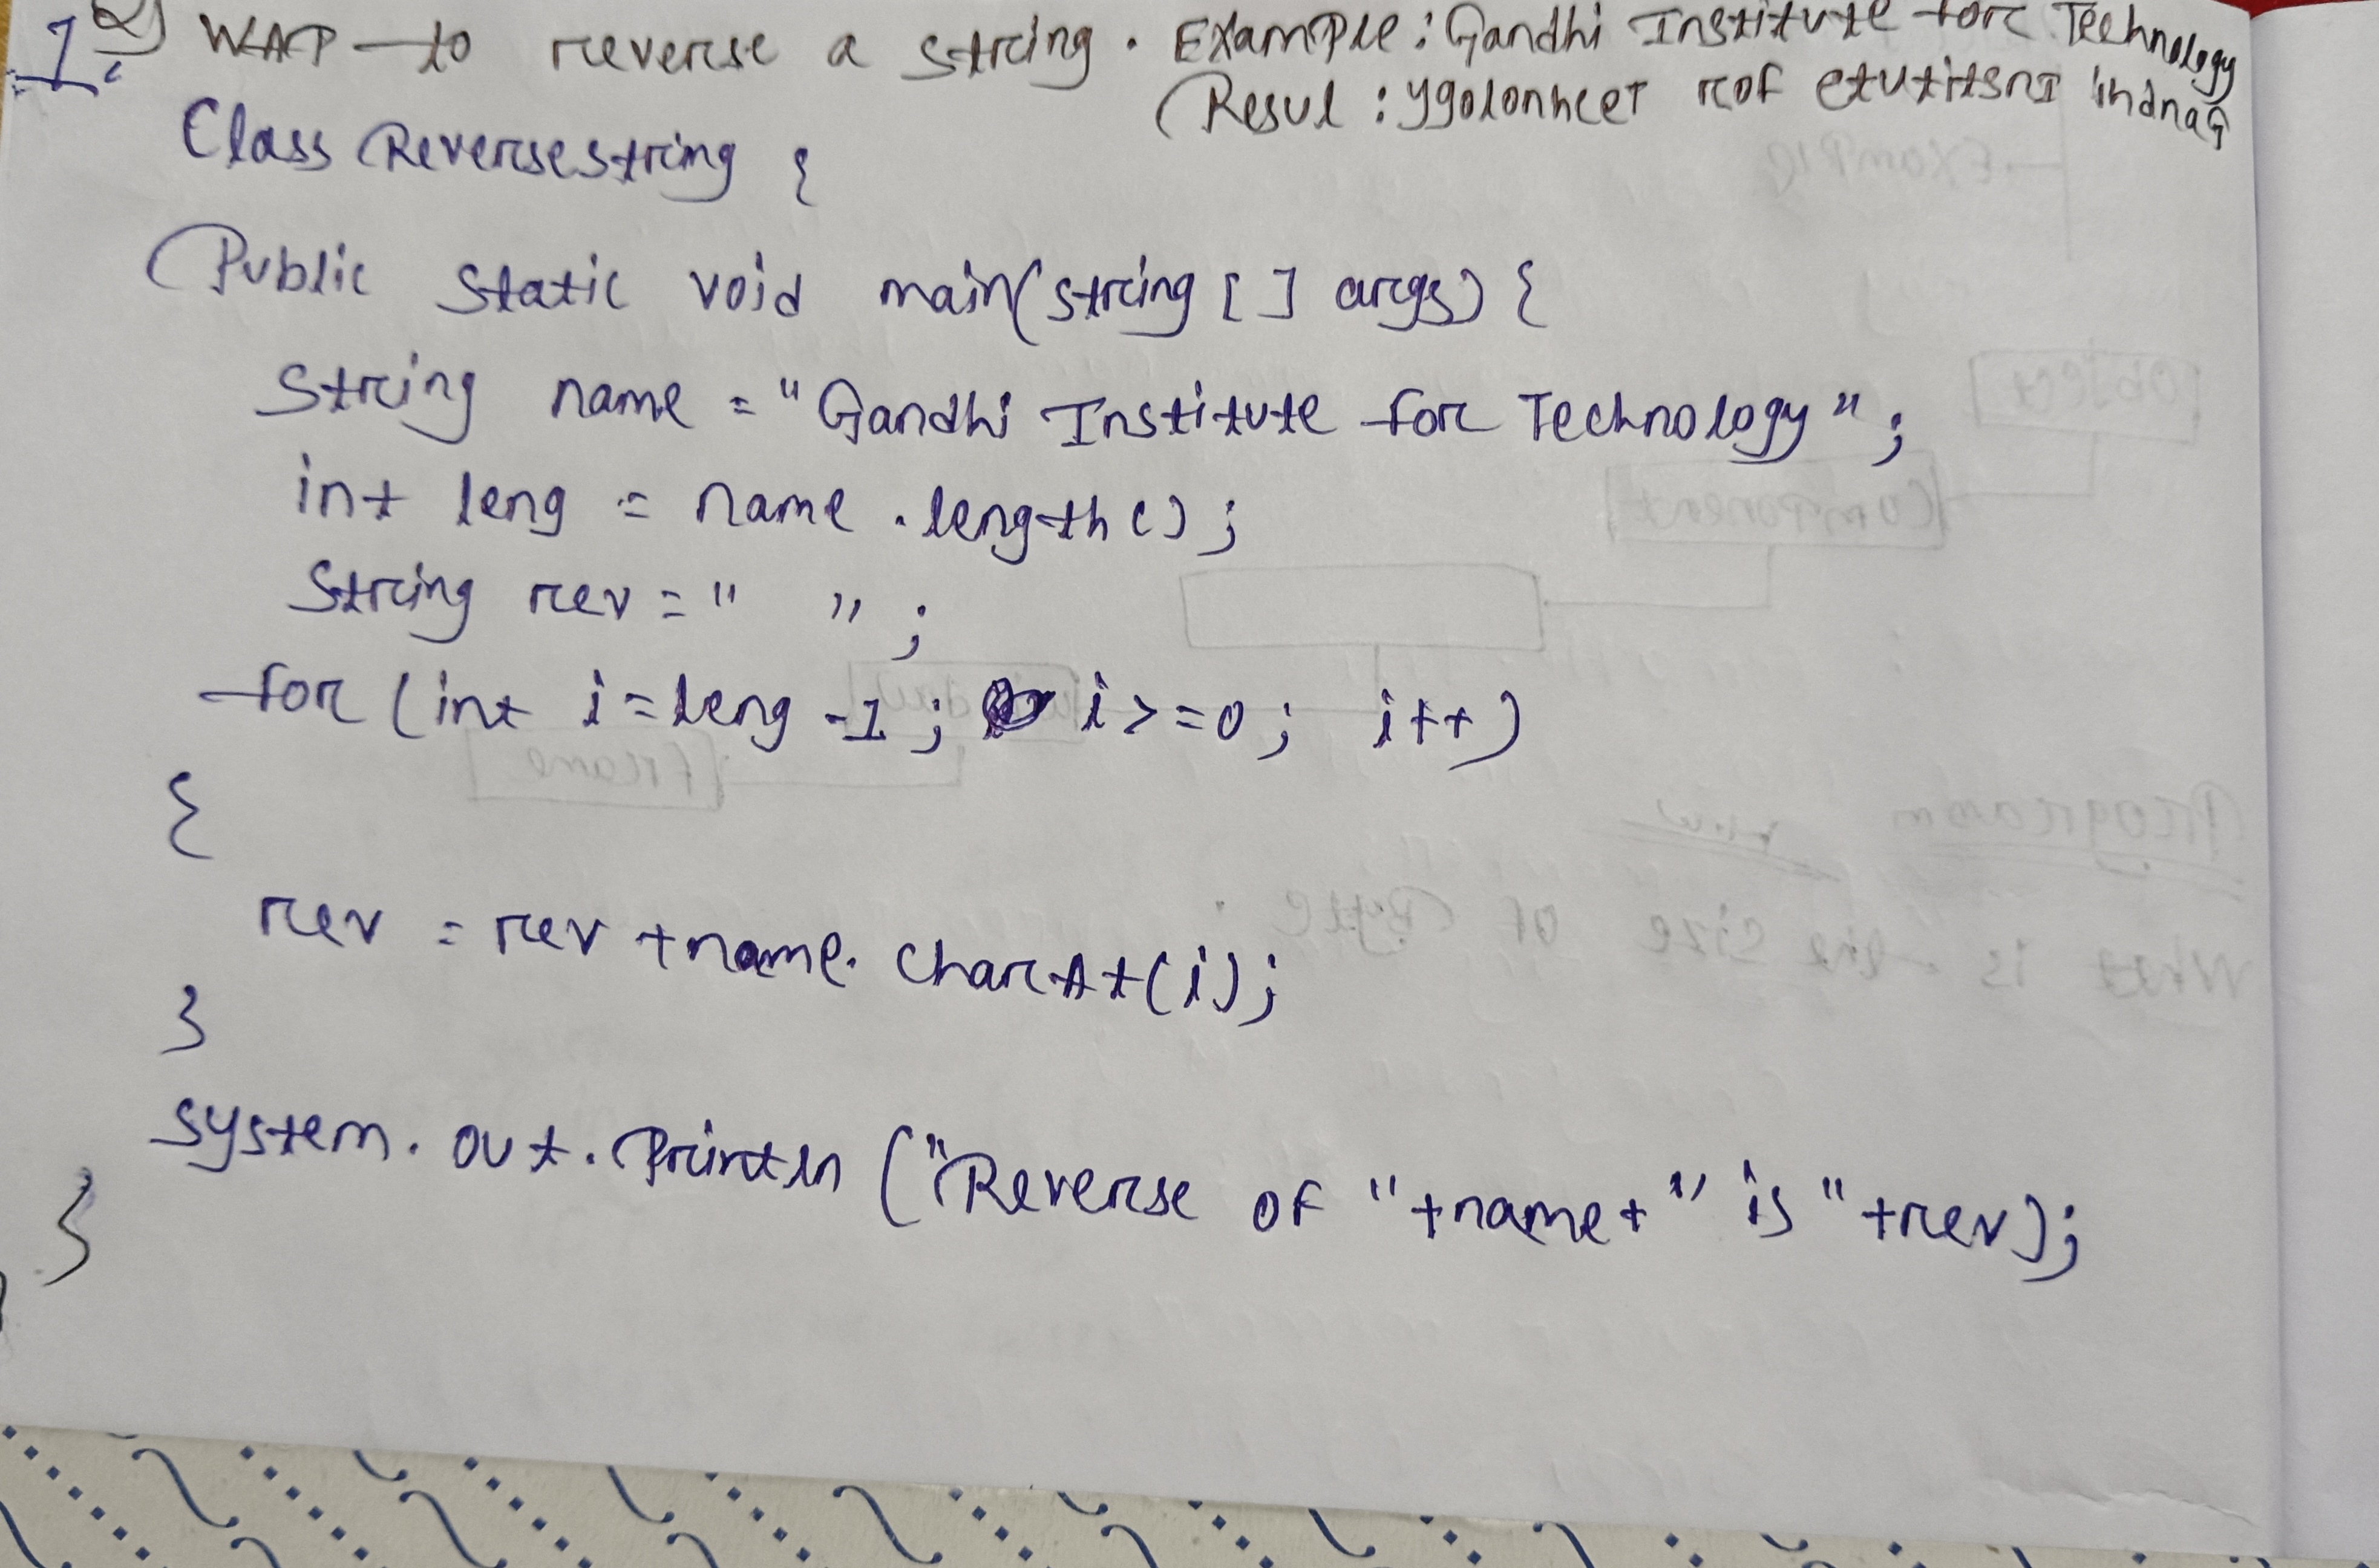 1. 2) WAP to reverse a string. Example: Gandhi Institute for Technology
Resul : ygolonhceT rof etutitsnI ihdnaG
Class Reversestring {
Public static void main(string [] args) {
String name = "Gandhi Institute for Technology";
int leng = name.length();
String rev = " ";
for (int i=leng -1; i>=0; i++)
{
rev = rev +name.charAt(i);
}
system.out.println ("Reverse of "+name+" is "+rev);
}
Example
[Object]
[Component]
[frame]
Programm
What is the size of Byte.